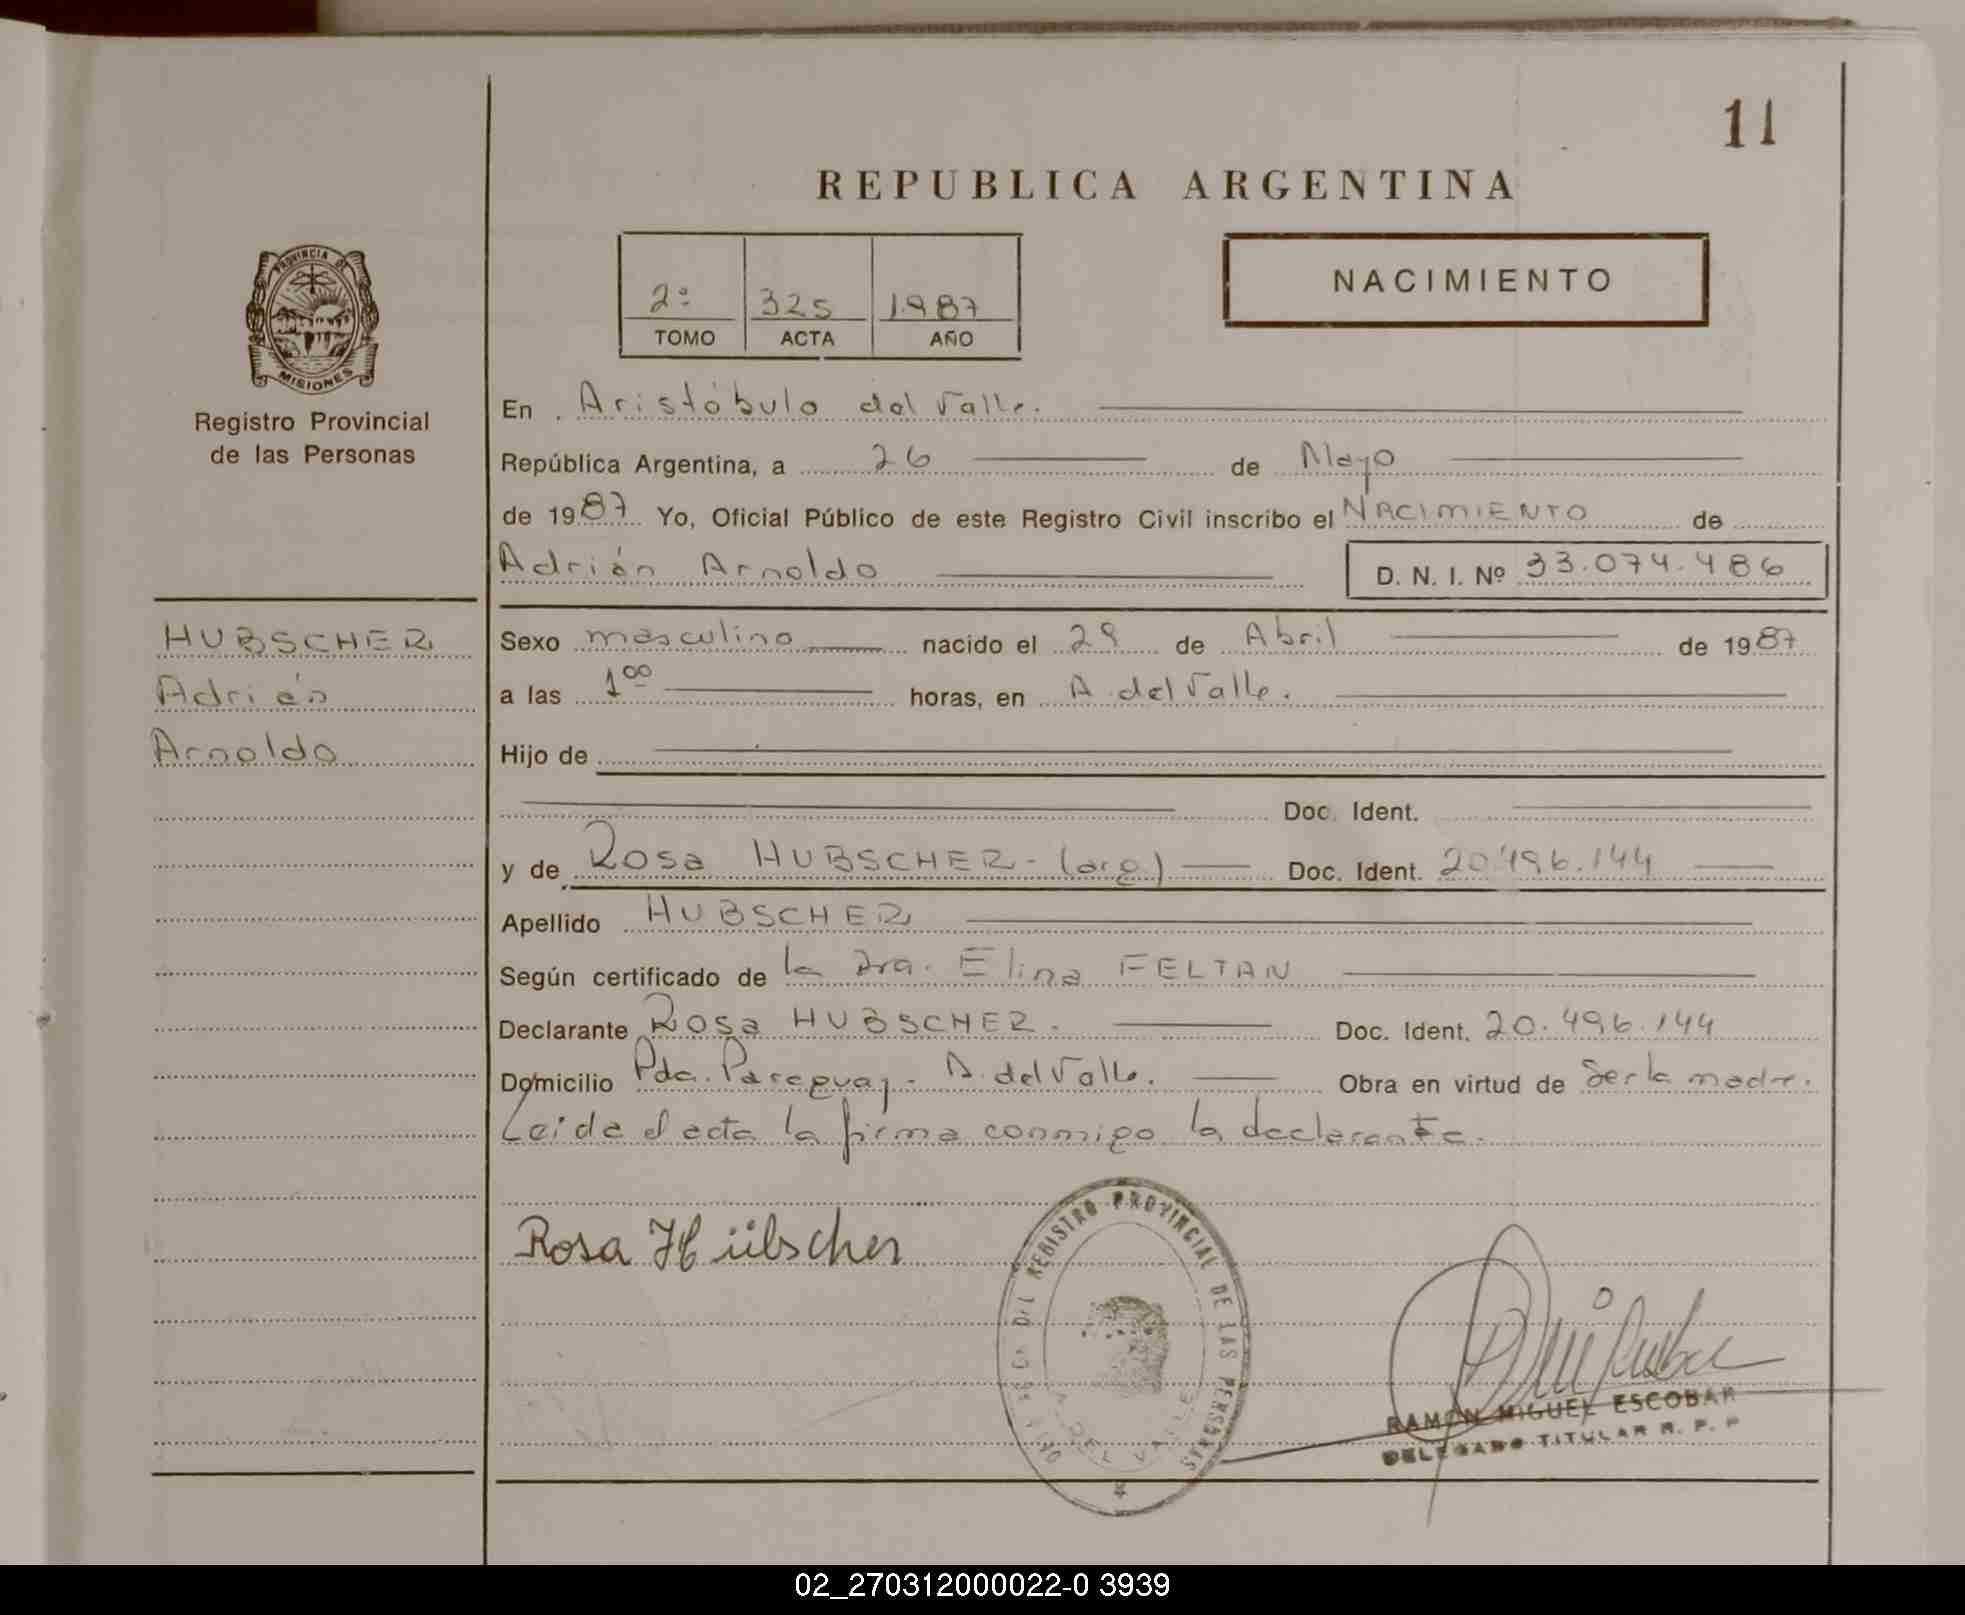 11
REPUBLICA ARGENTINA
PROVINCIA DE
MISIONES
Registro Provincial
de las Personas
2º 325 1987
TOMO ACTA AÑO
NACIMIENTO
En Aristóbulo del Valle.
República Argentina, a 26 de Mayo
de 1987 Yo, Oficial Público de este Registro Civil inscribo el NACIMIENTO de
Adrián Arnoldo D. N. I. Nº 33.074.486
HUBSCHER
Adrián
Arnoldo
Sexo masculino nacido el 29 de Abril de 1987
a las 1⁰⁰ horas, en A. del Valle.
Hijo de
Doc. Ident.
y de Rosa HUBSCHER - (arg) Doc. Ident. 20.496.144
Apellido HUBSCHER
Según certificado de la Dra. Elina FELTAN
Declarante Rosa HUBSCHER. Doc. Ident. 20.496.144
Domicilio Pda. Paraguay - A. del Valle. Obra en virtud de Ser la madre.
Leida el acta la firma conmigo la declarante.
Rosa Hübscher
REGISTRO PROVINCIAL DE LAS PERSONAS
A. DEL VALLE
RAMON MIGUEL ESCOBAR
DELEGADO TITULAR R. P. P
02_270312000022-0 3939